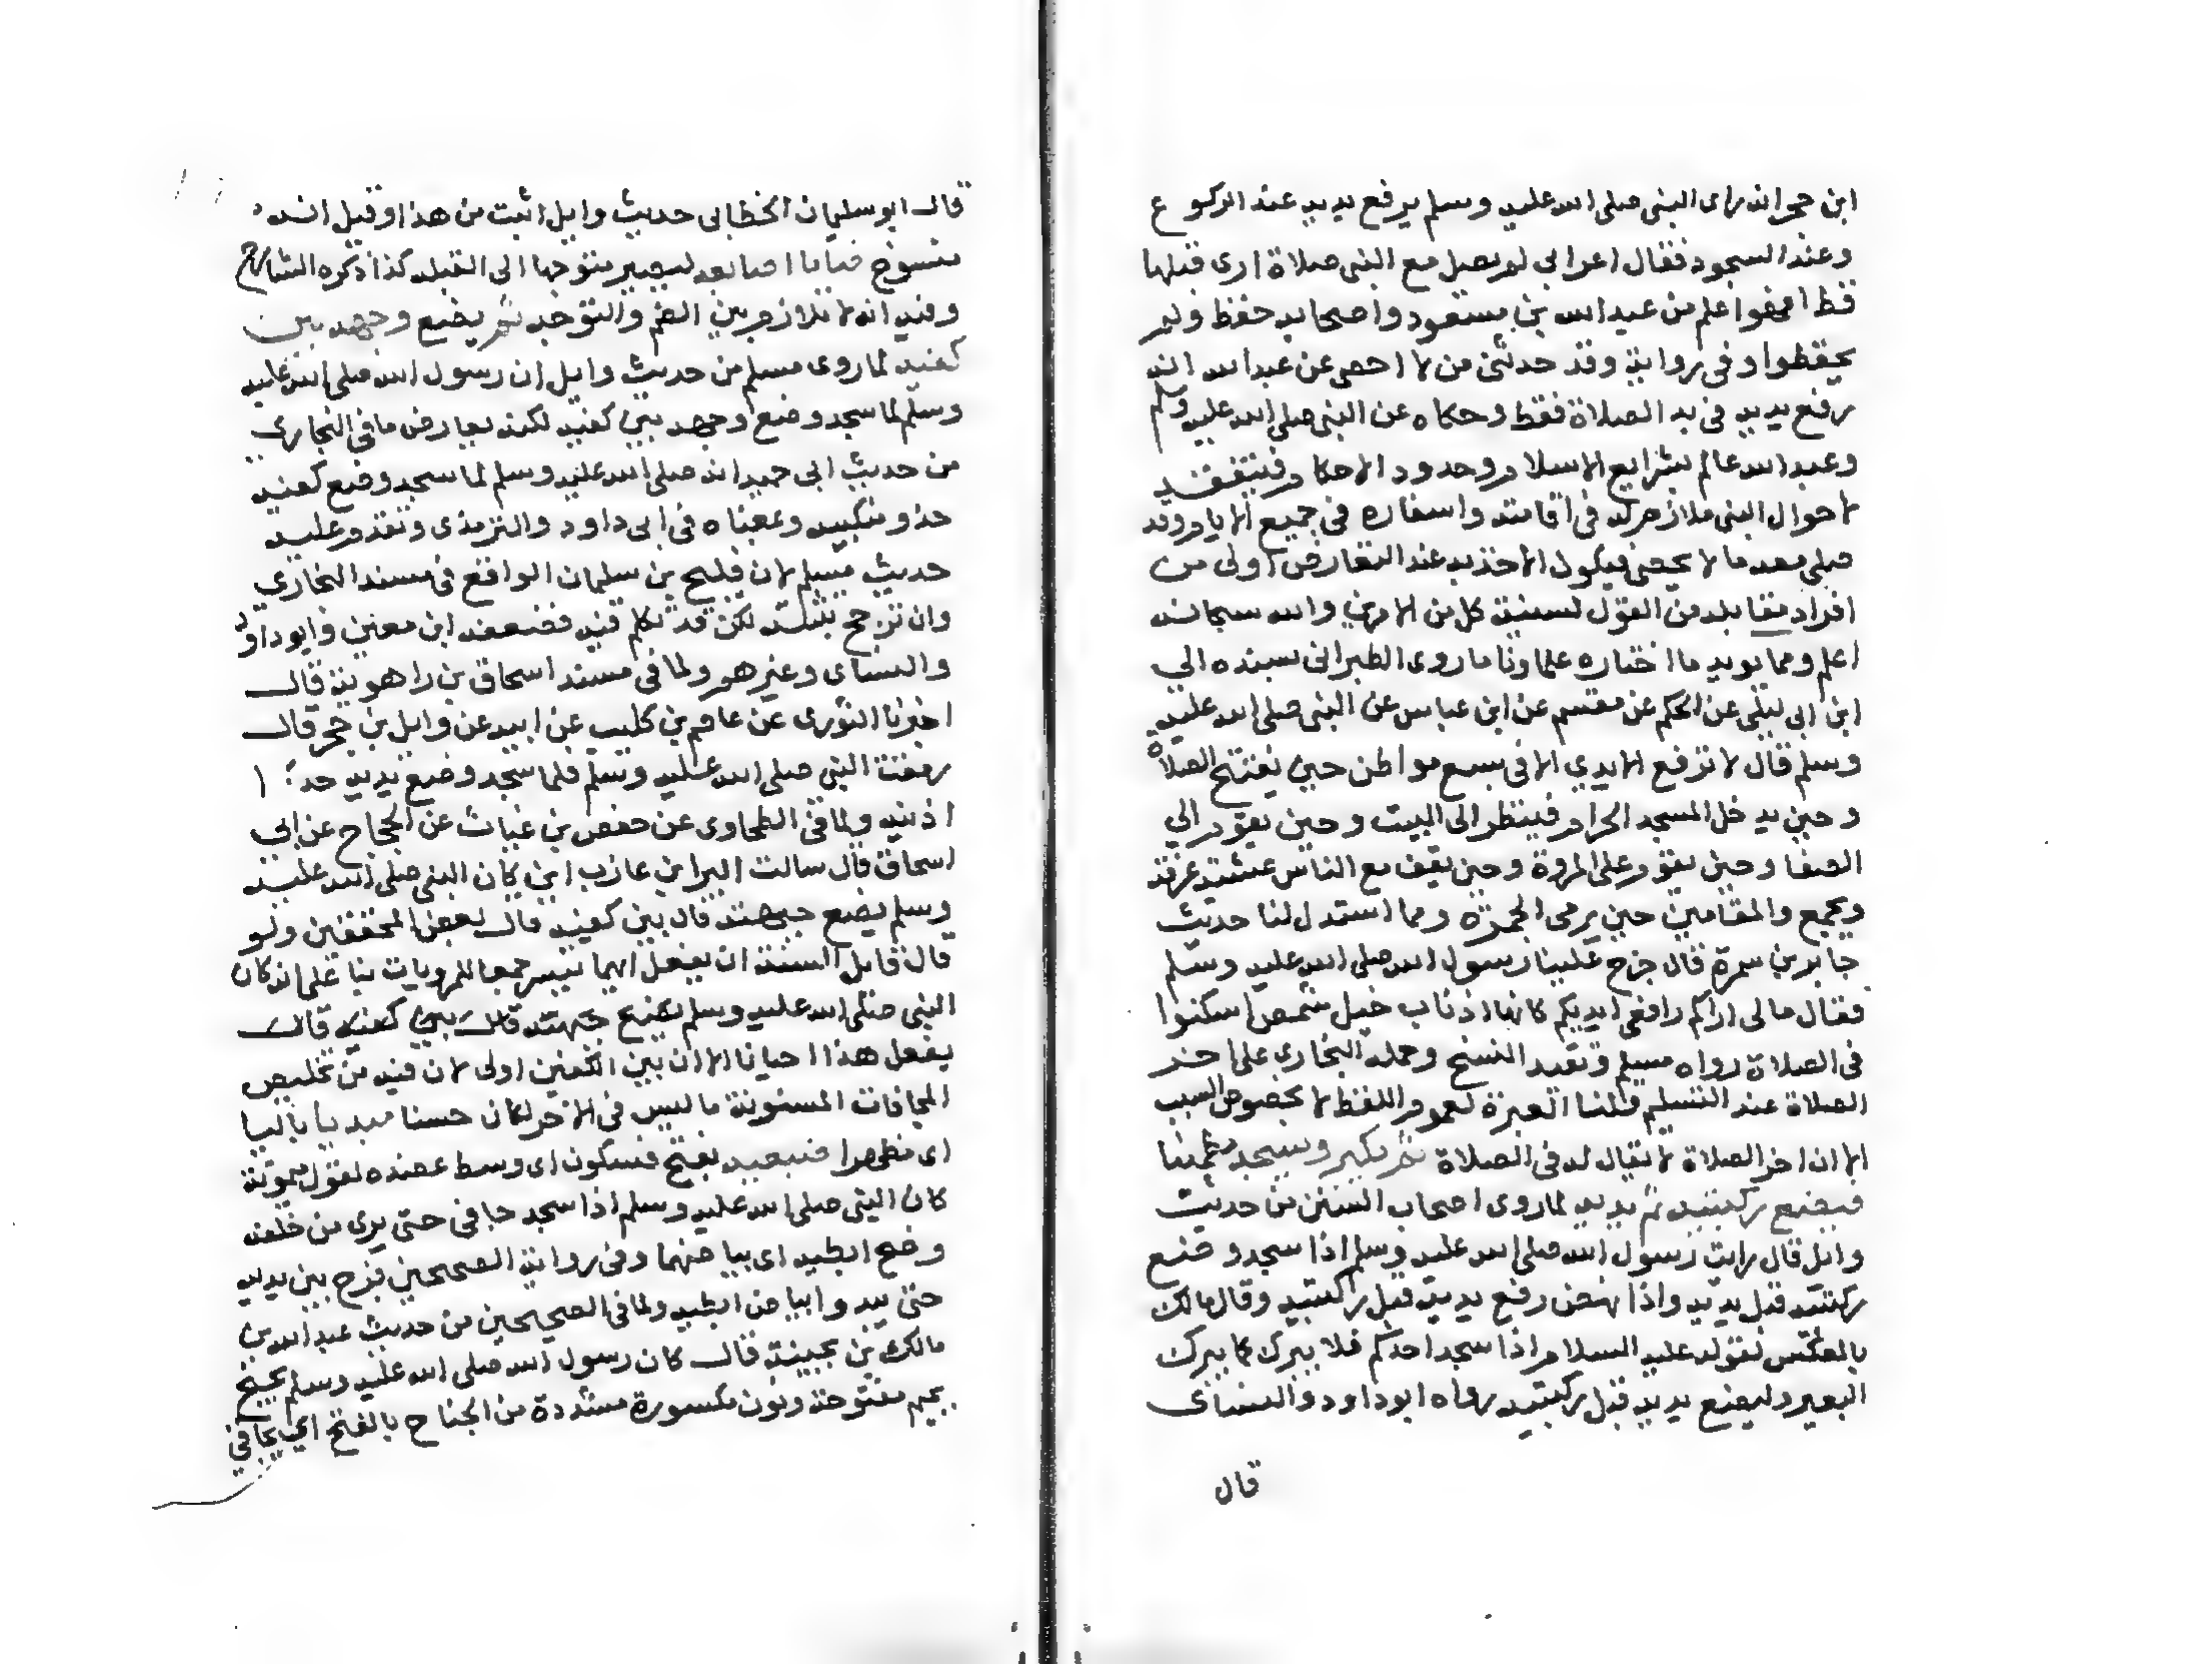 ابن حجر انه راى النبى صلى الله عليه وسلم يرفع يديه عند الركوع
وعند السجود فقال اعرابى لم يصل مع النبى صلاة ارى قبلها
قط افهوا علم من عبد الله بن مسعود واصحابه حفظ ولم
يحفظوا وفى رواية وقد حدثنى من لا احصى عن عبد الله انه
رفع يديه فى بد الصلاة فقط وحكاه عن النبى صلى الله عليه وسلم
وعبد الله عالم بشرايع الاسلام وحدود الاحكام متفقد
لاحوال النبى ملازم له فى اقامته واسفاره فى جميع الايام وقد
صلى معه ما لا يحصى فيكون الاخذ به عند التعارض اولى من
افراد مقابله من القول لسنية كل من الامرين والله سبحانه
اعلم ومما يويد ما اختاره علماونا ما روى الطبرانى بسنده الي
ابن ابى ليلى عن الحكم عن مقسم عن ابن عباس عن النبى صلى الله عليه
وسلم قال لا ترفع الايدي الا فى سبع مواطن حين يفتتح الصلاة
وحين يدخل المسجد الحرام فينظر الى البيت وحين يقوم الي
الصفا وحين يقوم على المروة وحين يقف مع الناس عشية عرفة
وبجمع والمقامين حين يرمى الجمرة ومما استدل لنا حديث
جابر بن سمرة قال خرج علينا رسول الله صلى الله عليه وسلم
فقال مالى اراكم رافعى ايديكم كانها اذناب خيل شمس اسكنوا
فى الصلاة رواه مسلم ويفيد النسخ وحمله البخارى على اخر
الصلاة عند التسليم قلنا العبرة لعموم اللفظ لا بخصوص السبب
الا ان اخر الصلاة لا يقال له فى الصلاة ثم يكبر ويسجد مطمئنا
فيضع ركبتيه ثم يديه لما روى اصحاب السنن من حديث
وايل قال رايت رسول الله صلى الله عليه وسلم اذا سجد وضع
ركبتيه قبل يديه واذا نهض رفع يديه قبل ركبتيه وقال مالك
بالعكس لقوله عليه السلام اذا سجد احدكم فلا يبرك كما يبرك
البعير وليضع يديه قبل ركبتيه رواه ابو داود والنساى
قال
قال ابو سليمان الخطابى حديث وايل اثبت من هذا وقيل انه
منسوخ ضاما اصابعه ليصير متوجها الى القبله كذا ذكره الشارح
وفيه انه لا تلازم بين الضم والتوجه ثم يضع وجهه بين
كفيه لما روى مسلم من حديث وايل ان رسول الله صلى الله عليه
وسلم لما سجد وضع وجهه بين كفيه لكنه يعارض ما فى البخارى
من حديث ابى حميد انه صلى الله عليه وسلم لما سجد وضع كفيه
حذو منكبيه وبمعناه فى ابى داود والترمذى وتقدم عليه
حديث مسلم لان فليح بن سليمان الواقع فى مسند البخاري
وان ترجح تثبته لكن قد تكلم فيه فضعفه ابن معين وابو داود
والنساى وغيرهم ولما فى مسند اسحاق بن راهوية قال
اخبرنا الثورى عن عاصم بن كليب عن ابيه عن وايل بن حجر قال
رمقت النبى صلى الله عليه وسلم فلما سجد وضع يديه حذا
اذنيه ولما فى الطحاوى عن حفص بن غياث عن الحجاج عن ابى
اسحاق قال سالت البرا بن عازب اين كان النبى صلى الله عليه
وسلم يضع جبهته قال بين كفيه قال بعض المحققين ولو
قال قايل السنة ان يفعل ايهما تيسر جمعا للمرويات بنا على انه كان
النبى صلى الله عليه وسلم يضع جبهته قال بين كفيه قال
يفعل هذا احيانا الا ان بين الكفين اولى لان فيه من تخليص
المجافات المسنونة ما ليس فى الاخر لكان حسنا مبديا باليا
اى مظهرا ضبعيه بفتح فسكون اى وسط عضده لقول ميمونة
كان النبى صلى الله عليه وسلم اذا سجد جافى حتى يرى من خلفه
وضح ابطيه اى بياضهما وفى رواية الصحيحين فرج بين يديه
حتى يبدو ابياض ابطيه ولما فى الصحيحين من حديث عبد الله بن
مالك بن بحينة قال كان رسول الله صلى الله عليه وسلم يجنح
بجيم مفتوحة ونون مكسورة مشددة من الجناح بالفتح اي يجافي